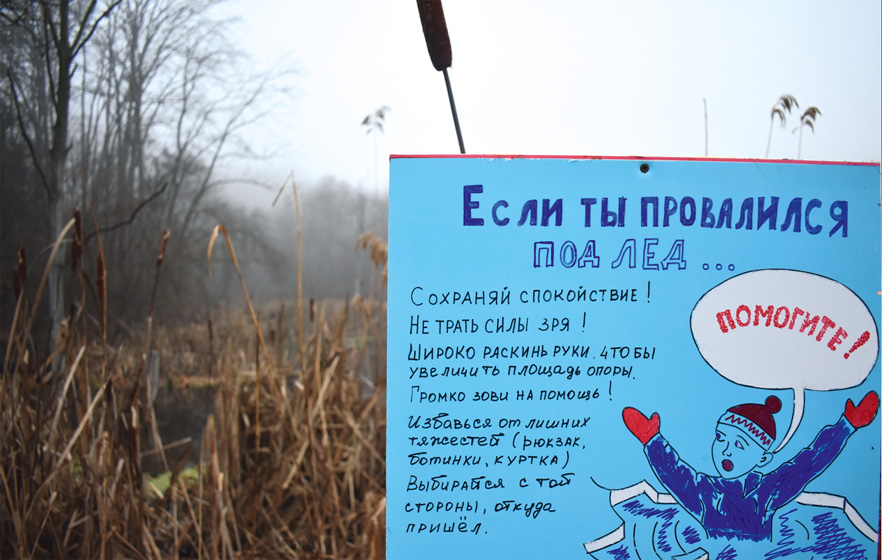 Если ты провалился
под лед ...
Сохраняй спокойствие!
Не трать силы зря!
Широко раскинь руки. чтобы
увеличить площадь опоры.
Громко зови на помощь!
Избавься от лишних
тяжестей (рюкзак,
ботинки, куртка)
Выбирайся с той
стороны, откуда
пришёл.
ПОМОГИТЕ!